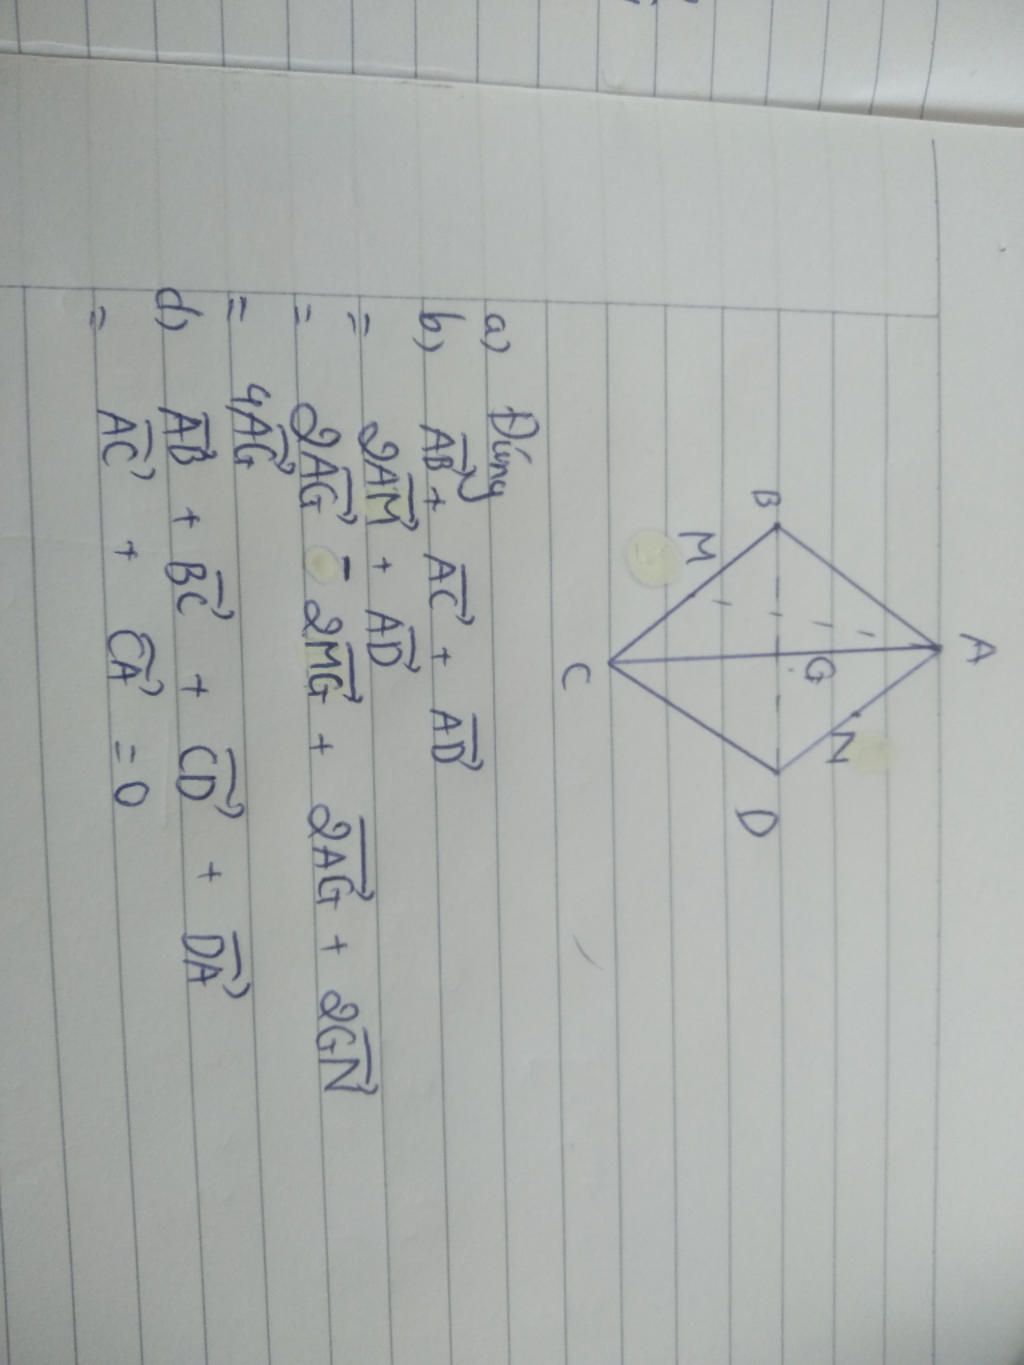 A
B
M
G
N
D
C
a) Đúng
b) $\overrightarrow{AB} + \overrightarrow{AC} + \overrightarrow{AD}$
= $2\overrightarrow{AM} + \overrightarrow{AD}$
= $2\overrightarrow{AG} - 2\overrightarrow{MG} + 2\overrightarrow{AG} + 2\overrightarrow{GN}$
= $4\overrightarrow{AG}$
d) $\overrightarrow{AB} + \overrightarrow{BC} + \overrightarrow{CD} + \overrightarrow{DA}$
= $\overrightarrow{AC} + \overrightarrow{CA} = 0$